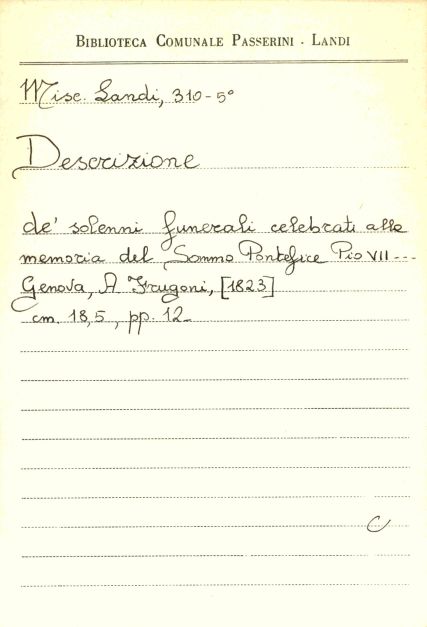 BIBLIOTECA COMUNALE PASSERINI - LANDI
Misc. Landi, 310-5°
Descrizione
de' solenni funerali celebrati alla
memoria del Sommo Pontefice Pio VII ---
Genova, A Frugoni, [1823]
cm. 18,5, pp. 12
C